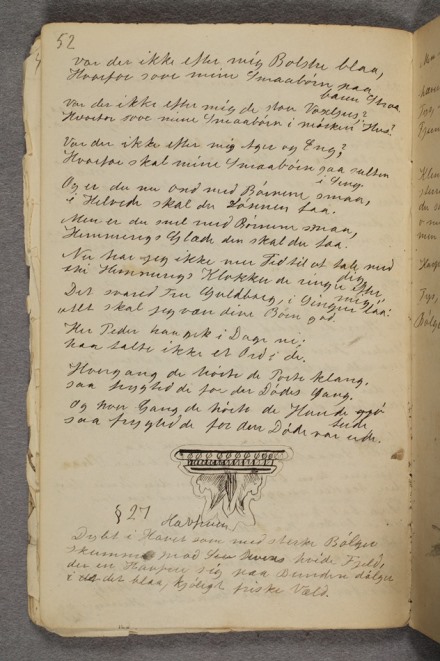 52
var der ikke efter mig Bolstre blaa,
Hvorfor sove mine Smaabørn paa
bare Straa
Var der ikke efter mig de store Voxljus?
Hvorfor sove mine Smaabørn i mörken Hus?
Var der ikke efter mig Ager og Eng?
Hvorfor skal mine Smaabørn gaa sulten
i Seng
Og er du nu ond med Børnene smaa,
i Helvede skal du Lønnen faa.
Men er du snil med Børnene smaa,
Himmerigs Glæde den skal du faa.
Nu har jeg ikke mer Tid til at tale med
dig
thi Himmerigs Klokker de ringe efter
mig!
Det svared Fru Guldborg, i
alt skal jeg vare dine Børn god.
Her Peder han gik i Dage ni:
han talte ikke et Ord i de.
Hvergang de hørte de Porte klang,
saa frygtede for den Dødes Gang.
Og hver Gang de hørte de Hunde
tude
saa frygtede for den Døde var ude.
§ 27
Havfruen,
Dybt i Havet som med sterke Bølger
skummer mod hvide Fjeld,
der en Havfrue sig paa Bunden dølger
i det blaa, kjøligt friske Væld.